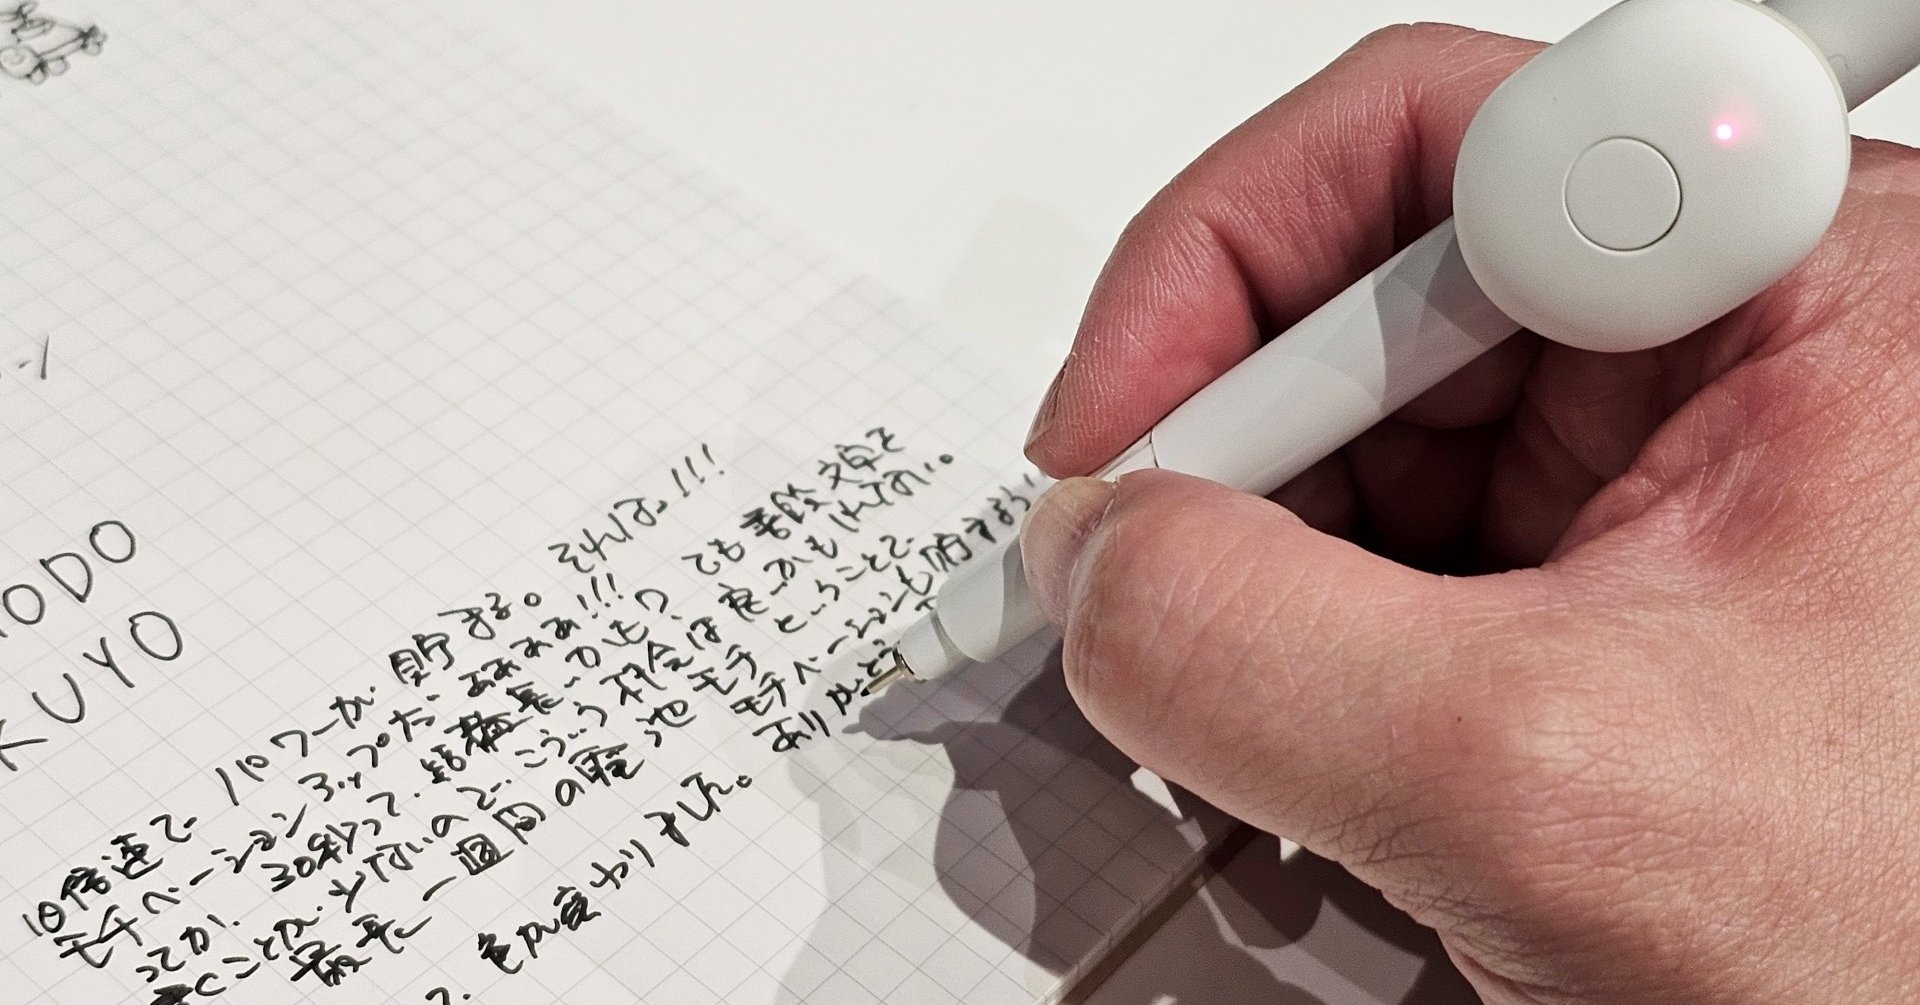 ODO
KUYO
10倍速で パワーが 貯まる。それはっ!!!
モチベーションアップだ ああああ!!!
ってか、30秒って、結構長いかも?でも普段文字を
書くことが少ないので、こういう機会は良いかもしれない。
最長一週間の電池モチ ということで、
モチベーションも貯まる
色が変わりました。ありがとう